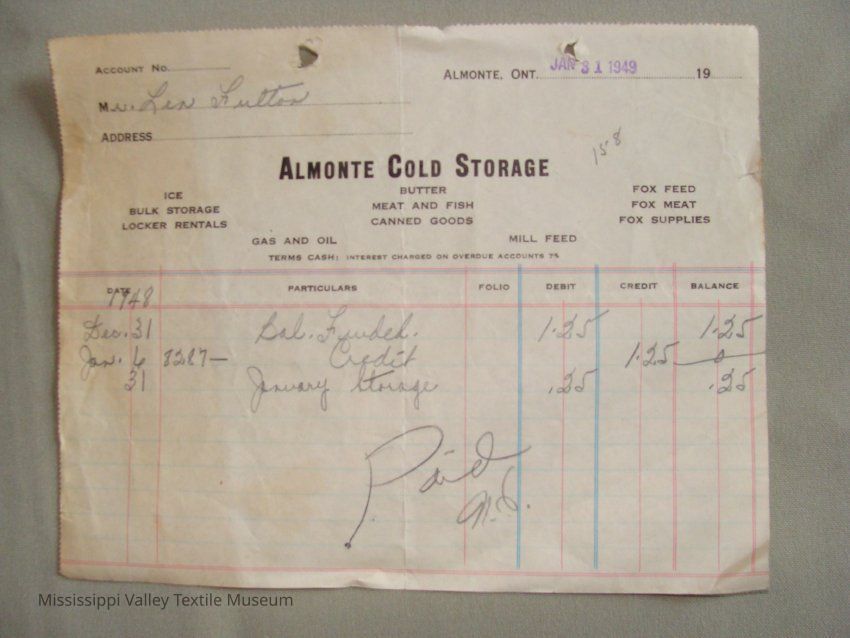 ACCOUNT No.
ALMONTE, ONT. JAN 31 1949 19
Mr. Len Fulton
ADDRESS
158
ALMONTE COLD STORAGE
ICE
BULK STORAGE
LOCKER RENTALS
BUTTER
MEAT AND FISH
CANNED GOODS
FOX FEED
FOX MEAT
FOX SUPPLIES
GAS AND OIL MILL FEED
TERMS CASH: INTEREST CHARGED ON OVERDUE ACCOUNTS 7%
DATE PARTICULARS FOLIO DEBIT CREDIT BALANCE
1948
Dec. 31 Bal. 1.25 1.25
Jan. 6 8287— Credit 1.25 0
31 January Storage .25 .25
Paid
Mississippi Valley Textile Museum